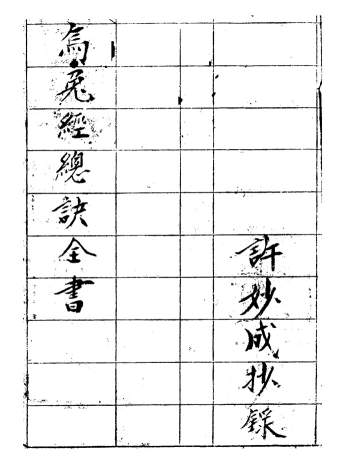 許妙成抄錄
烏兎經總訣全書